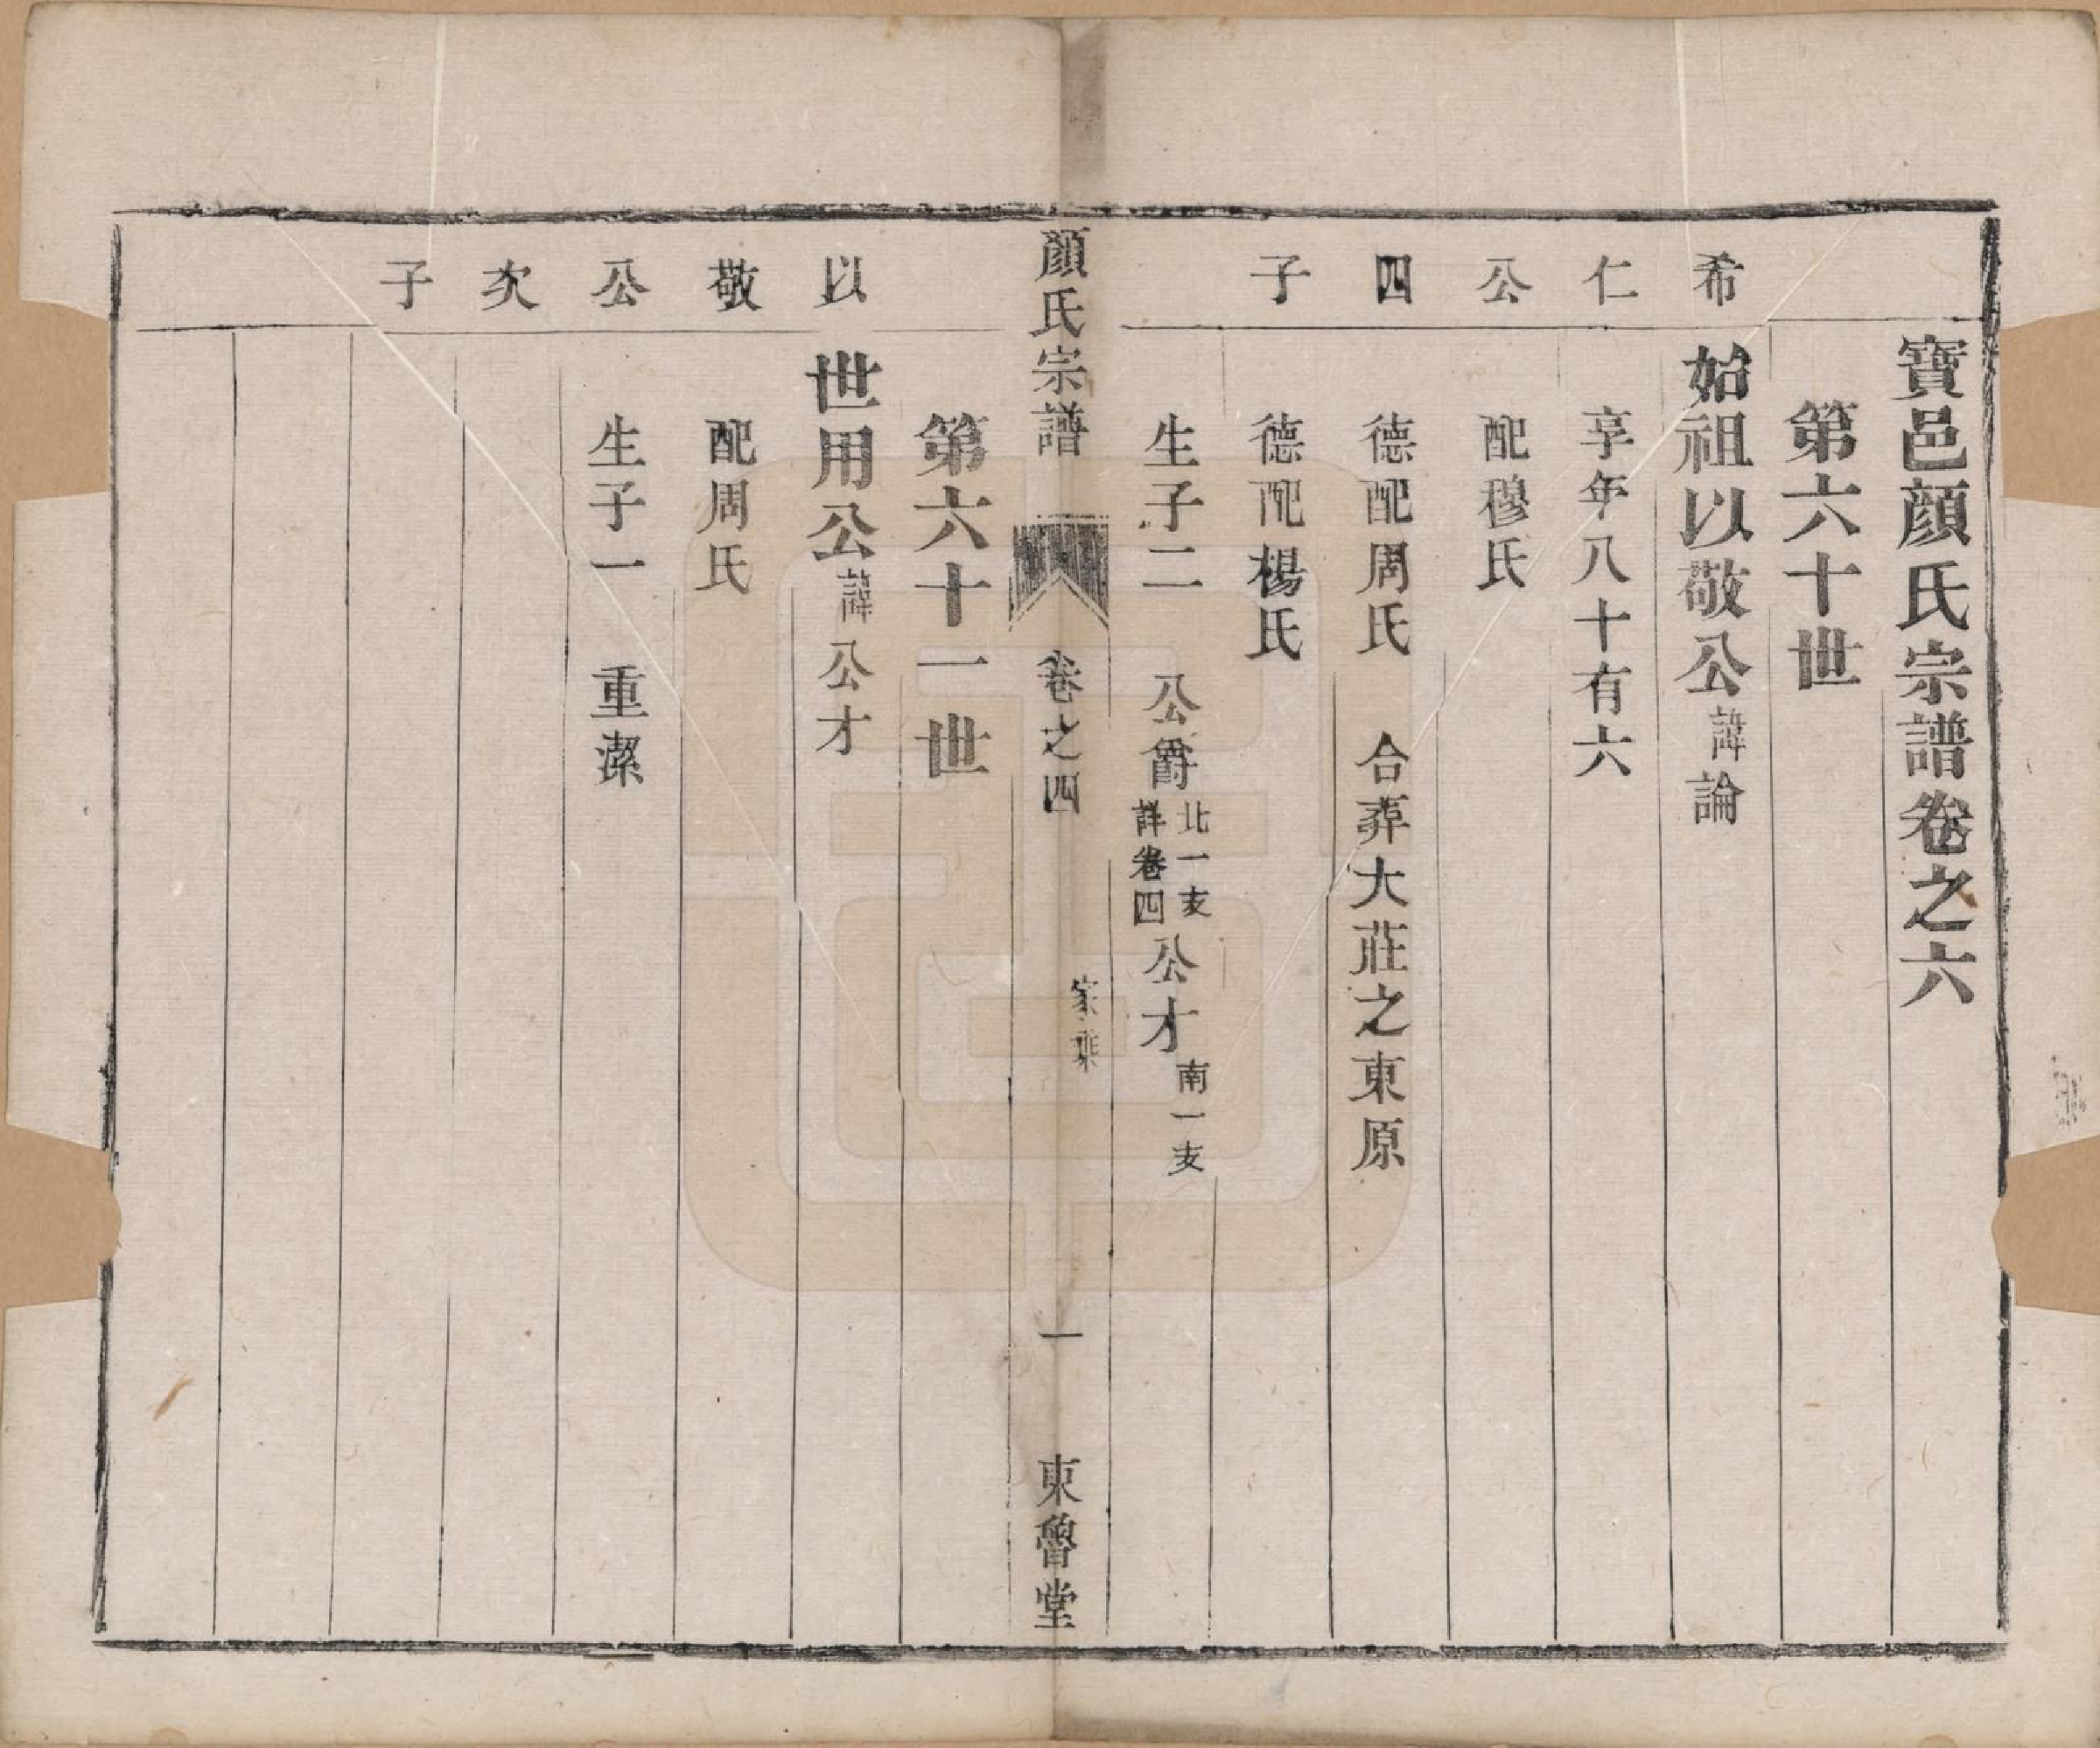 寶邑顔氏宗譜卷之六
第六十世
希仁公四子
始祖以敬公諱論
享年八十有六
配穆氏
德配周氏 合葬大莊之東原
德配楊氏
生子二 公爵北一支詳卷四公才南一支
顔氏宗譜 卷之四 家乘 一 東魯堂
第六十一世
以敬公次子
世用公諱公才
配周氏
生子一 重潔